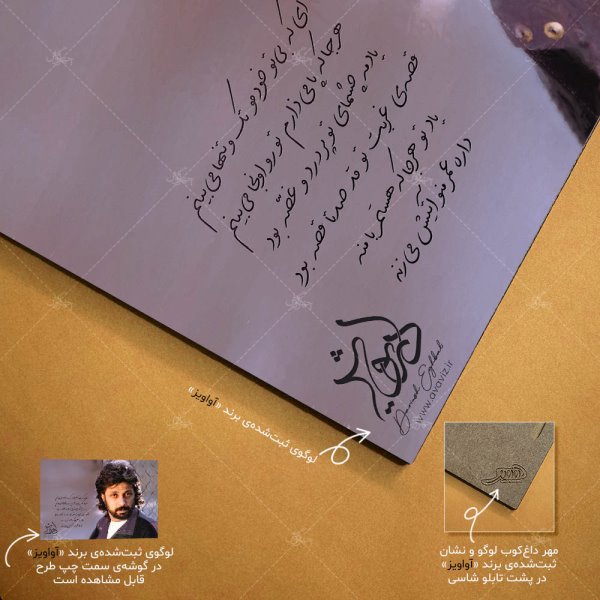 ای که بی تو خودمو تک و تنها می بینم
هرجا که پا می ذارم تو رو اونجا می بینم
یادمه چشمای تو پر درد و غصّه بود
قصه‌ی غربت تو قد صد تا قصّه بود
یاد تو هرجا که هستم با منه
داره عمر منو آتیش می زنه
آواویز
www.avaviz.ir
لوگوی ثبت‌شده‌ی برند «آواویز»
لوگوی ثبت‌شده‌ی برند «آواویز»
در گوشه‌ی سمت چپ طرح
قابل مشاهده است
آواویز
مهر داغ‌کوب لوگو و نشان
ثبت‌شده‌ی برند «آواویز»
در پشت تابلو شاسی